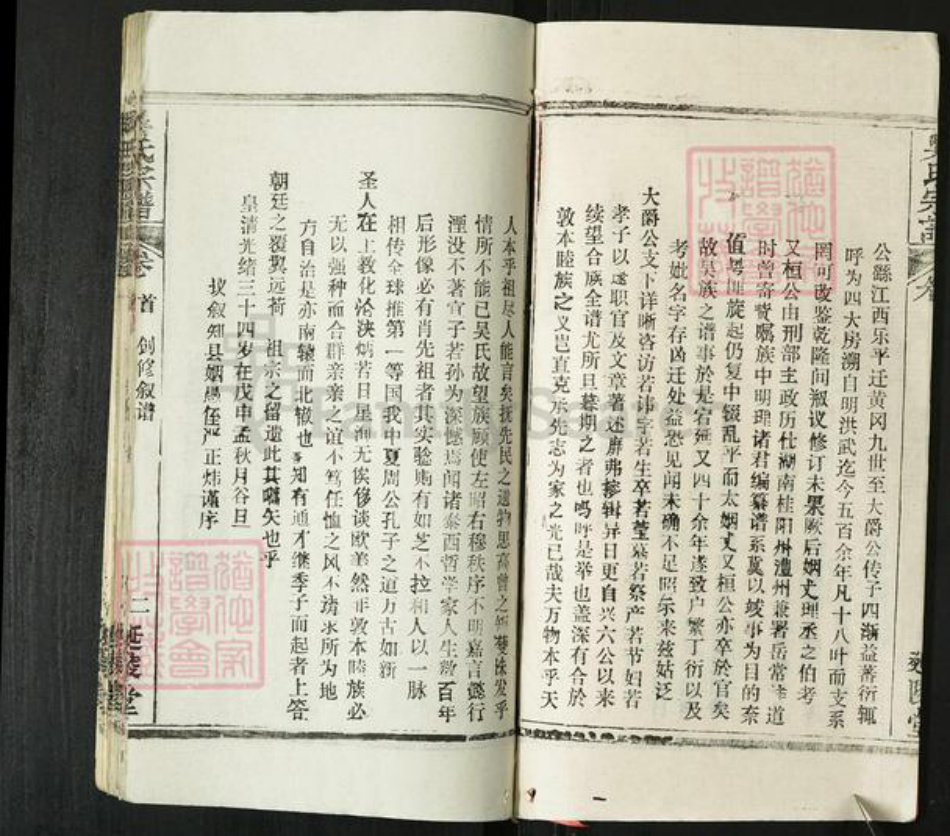 公繇江西乐平迁黄冈九世至大爵公传子四渐益蕃衍辄
呼为四大房溯自明洪武迄今五百余年凡十八叶而支系
罔可改鉴乾隆间淑议修订未果厥后姻丈理丞之伯考
又桓公由刑部主政历仕湖南桂阳州澧州兼署岳常道
时曾寄赀嘱族中明理诸君编纂谱系冀以竣事为目的奈
值粤匪旋起仍复中辍乱平而太姻丈又桓公亦卒於官矣
故吴族之谱事於是宕延又四十余年遂致户繁丁衍以及
考妣名字存凶迁处益恐见闻未确不足昭示来兹姑泛
大爵公支下详晰咨访若讳字若生卒若茔墓若祭产若节妇若
孝子以逮职官及文章著述靡弗掺辑异日更自兴六公以来
续望合族全谱尤所旦暮期之者也吗呼是举也盖深有合於
敦本睦族之义岂直克承先志为家之光已哉夫万物本乎天
人本乎祖尽人能言矣抚先民之遗物思高曾之矩蒦油发乎
情所不能已吴氏故望族顾使左昭右穆秩序不明嘉言懿行
湮没不著宣子若孙为深憾焉闻诸泰西哲学家人生数百年
后形像必有肖先祖者其实验则有如芝不拉和人以一脉
相传全球推第一等国我中夏周公孔子之道万古如新
圣人在上教化沦浃炳若日星洵无俟侈谈欧美然非敦本睦族必
无以强种而合群亲亲之谊不笃任恤之风不诪求所为地
方自治是亦南辕而北辙也知有通才继季子而起者上答
朝廷之覆翼远荷 祖宗之留遗此其嚆矢也乎
皇清光绪三十四岁在戊申孟秋月谷旦
议叙知县姻愚侄严正炜谨序
氏宗谱
卷
首
创修叙谱
二
延陵堂